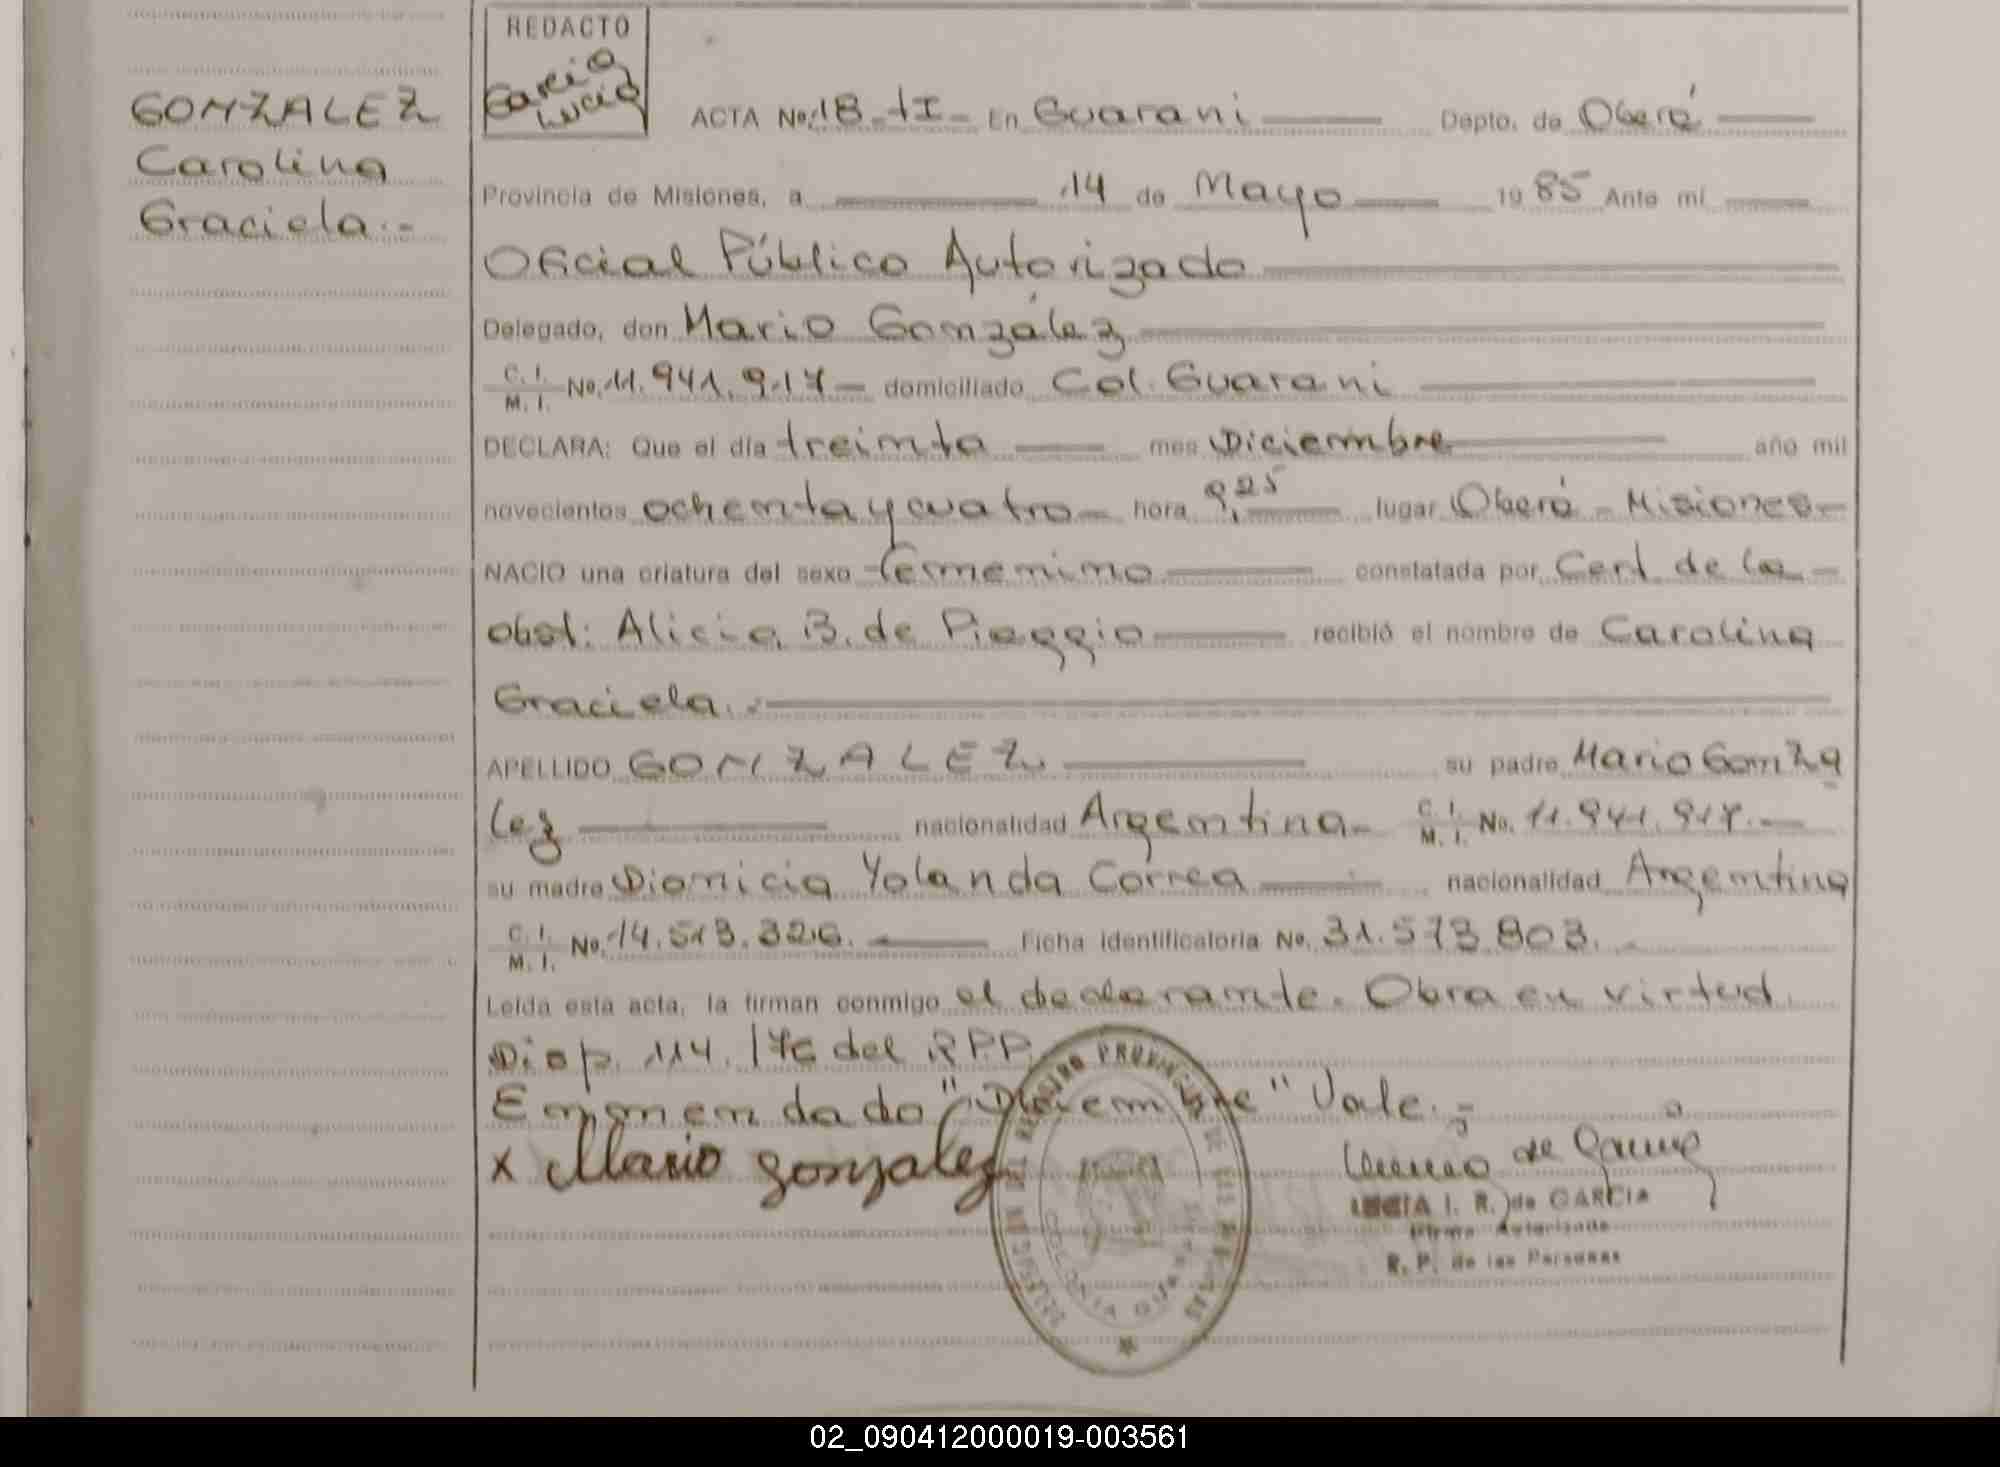 REDACTO
Garcia
Lucia
GONZALEZ
Carolina
Graciela.-
ACTA No. 18-tI- En Guarani Depto. de Oberá
Provincia de Misiones, a 14 de Mayo 1985 Ante mí
Oficial Público Autorizado
Delegado, don Mario González
C. I. M. I. No. 11.941.917- domiciliado Col. Guarani
DECLARA: Que el día treinta mes Diciembre año mil
novecientos ochenta y cuatro- hora 9,25 lugar Oberá - Misiones-
NACIO una criatura del sexo femenino constatada por Cert de la -
obst: Alicia B. de Piaggio recibió el nombre de Carolina
Graciela.-
APELLIDO GONZALEZ su padre Mario Gonza
lez nacionalidad Argentina- C. I. M. I. No. 11.941.917.-
su madre Dionicia Yolanda Correa nacionalidad Argentina
C. I. M. I. No. 14.513.326. Ficha identificatoria No. 31.573.803.
Leída esta acta, la firman conmigo el declarante. Obra en virtud
Disp. 114.176 del R.P.P.
Enmendado "Diciembre" Vale.-
x Mario gonzalez
LUCIA I. R. de GARCIA
Firma Autorizada
R. P. de las Personas
REGISTRO PROVINCIAL DE LAS PERSONAS
COLONIA GUARANI
02_090412000019-003561